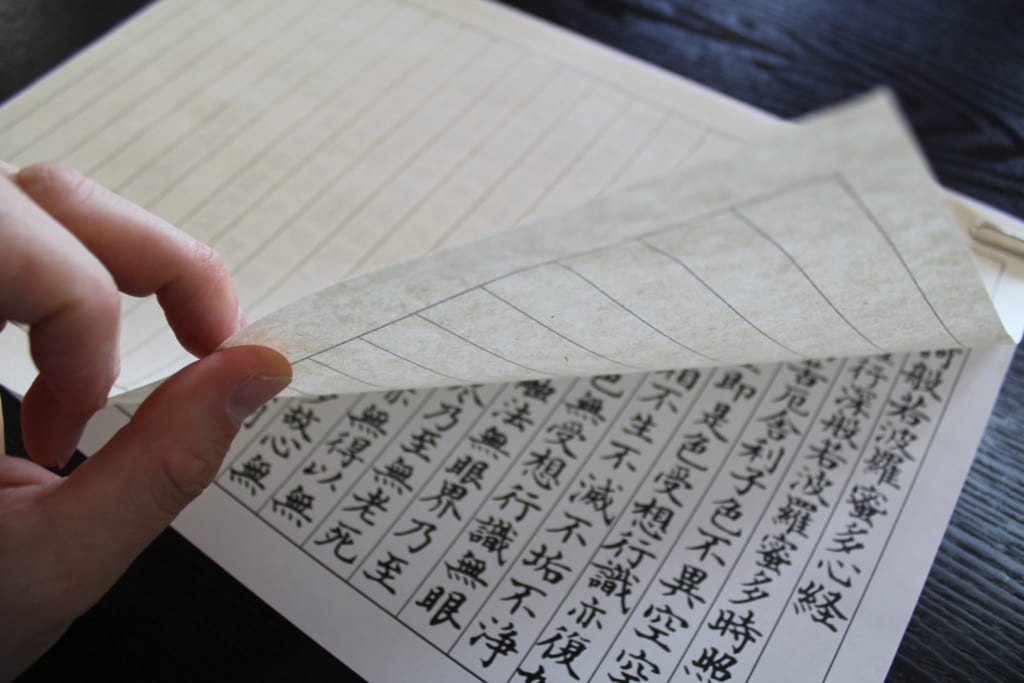 般若波羅蜜多心経
行深般若波羅蜜多時照
苦厄舎利子色不異空空
即是色受想行識亦復
相不生不滅不垢不浄
色無受想行識無眼
法無眼界乃至
乃至無老死
無得以無
故心無